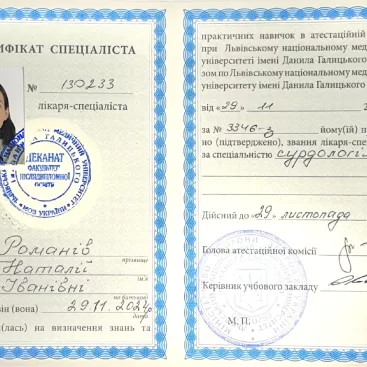 ИФІКАТ СПЕЦІАЛІСТА
№ 130233
лікаря-спеціаліста
ДЕКАНАТ
ФАКУЛЬТЕТ
ПІСЛЯДИПЛОМНОЇ
ОСВІТИ
Романів
прізвище
Наталії
ім'я
Іванівні
по батькові
він (вона) 29.11.2024р.
дата
(лась) на визначення знань та
практичних навичок в атестаційній
при Львівському національному мед
університеті імені Данила Галицького
зом по Львівському національному мед
університету імені Данила Галицького
від «29» 11
за № 3346-з йому(їй) п
но (підтверджено), звання лікаря-спе
за спеціальністю сурдологі
Дійсний до «29» листопада
Голова атестаційної комісії
Керівник учбового закладу
М.П.